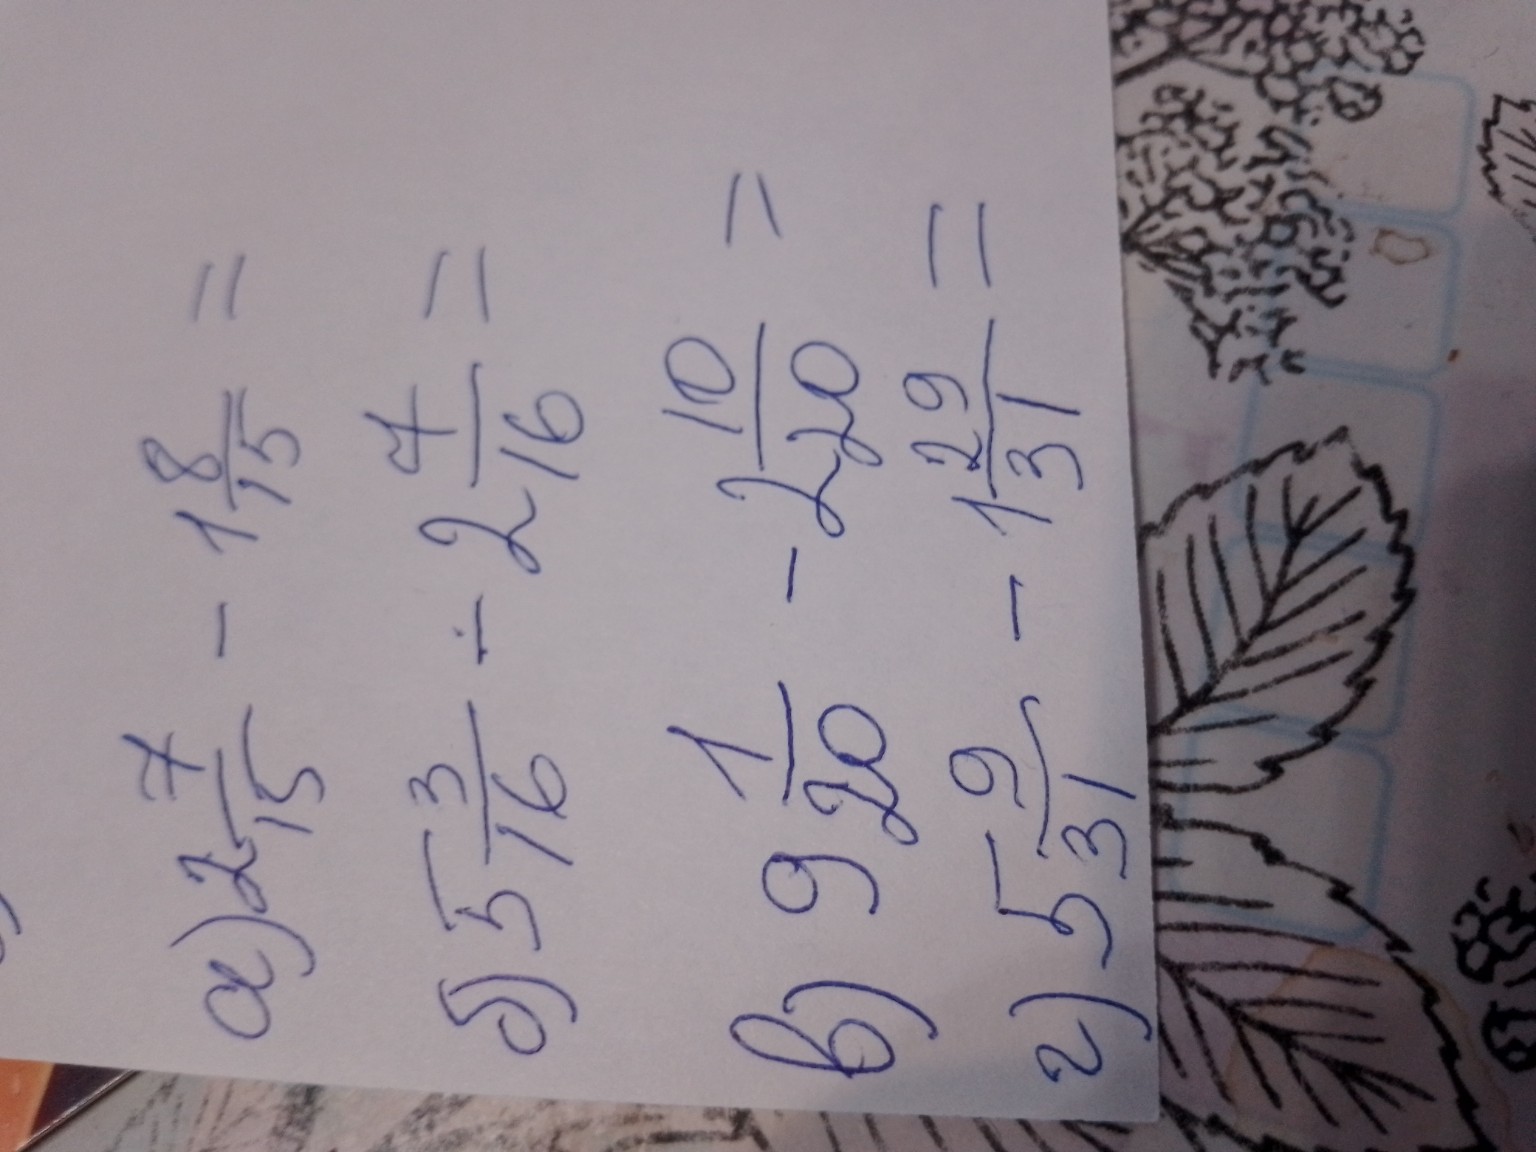 а) 2 7/15 - 1 8/15 =
б) 5 3/16 - 2 7/16 =
в) 9 1/20 - 2 10/20 =
г) 5 9/31 - 1 29/31 =